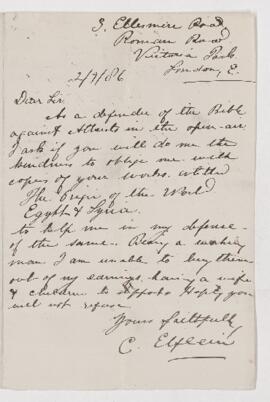 3, Ellesmere Road
Roman Road
Victoria Park
London, E.
2/9/86
Dear Sir
As a defender of the Bible
against Atheists in the open-air,
I ask if you will do me the
kindness to oblige me with
copies of your works entitled
The Origin of the World
Egypt & Syria.
to help me in my defense
of the same. Being a working
man I am unable to buy them
out of my earnings, having a wife
& children to support. Hope you
will not refuse
Yours faithfully
C.